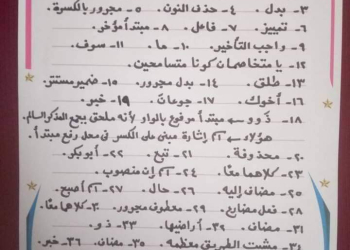 ٣- بدل. ٤- حذف النون. ٥- مجرور بالكسرة.
٦- تمييز. ٧- فاعل. ٨- مبتدأ مؤخر.
٩- واجب التأخير. ١٠- ما. ١١- سوف.
١٢- يا متخاصمان كونا متسامحين.
١٣- طلق. ١٤- بدل مجرور. ١٥- ضمير مستتر.
١٦- أخوك. ١٧- جوعان. ١٩- خبر.
١٨- ذوو ← مبتدأ مرفوع بالواو لأنه ملحق بجمع المذكر السالم.
هؤلاء ← اسم إشارة مبنى على الكسر فى محل رفع مبتدأ.
٢٠- محذوفة. ٢١- تبع. ٢٢- أبو بكر.
٢٣- كلاهما معًا. ٢٤- اسم إن منصوب.
٢٥- مضاف إليه. ٢٦- حال. ٢٧- اسم أصبح.
٢٨- فعل مضارع. ٢٩- معطوف مجرور. ٣٠- كلاهما معًا.
٣١- مضاف. ٣٢- أراضيها. ٣٣- ذو.
مشيت الطريق معظمه. ٣٥- مضاف. ٣٦- خبر.